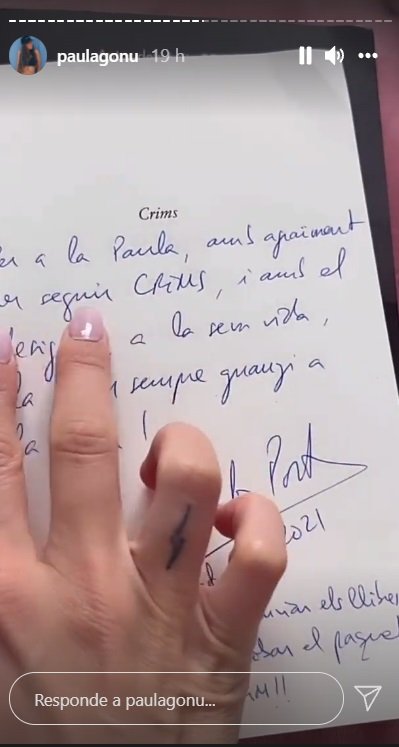 paulagonu 19 h
Crims
er a la Paula, amb agraïment
er seguir CRiMS, i amb el
desig a a la seva vida,
la sempre guanyi a
la !
Port
2021
els llibres
el paquet
!!
Responde a paulagonu...